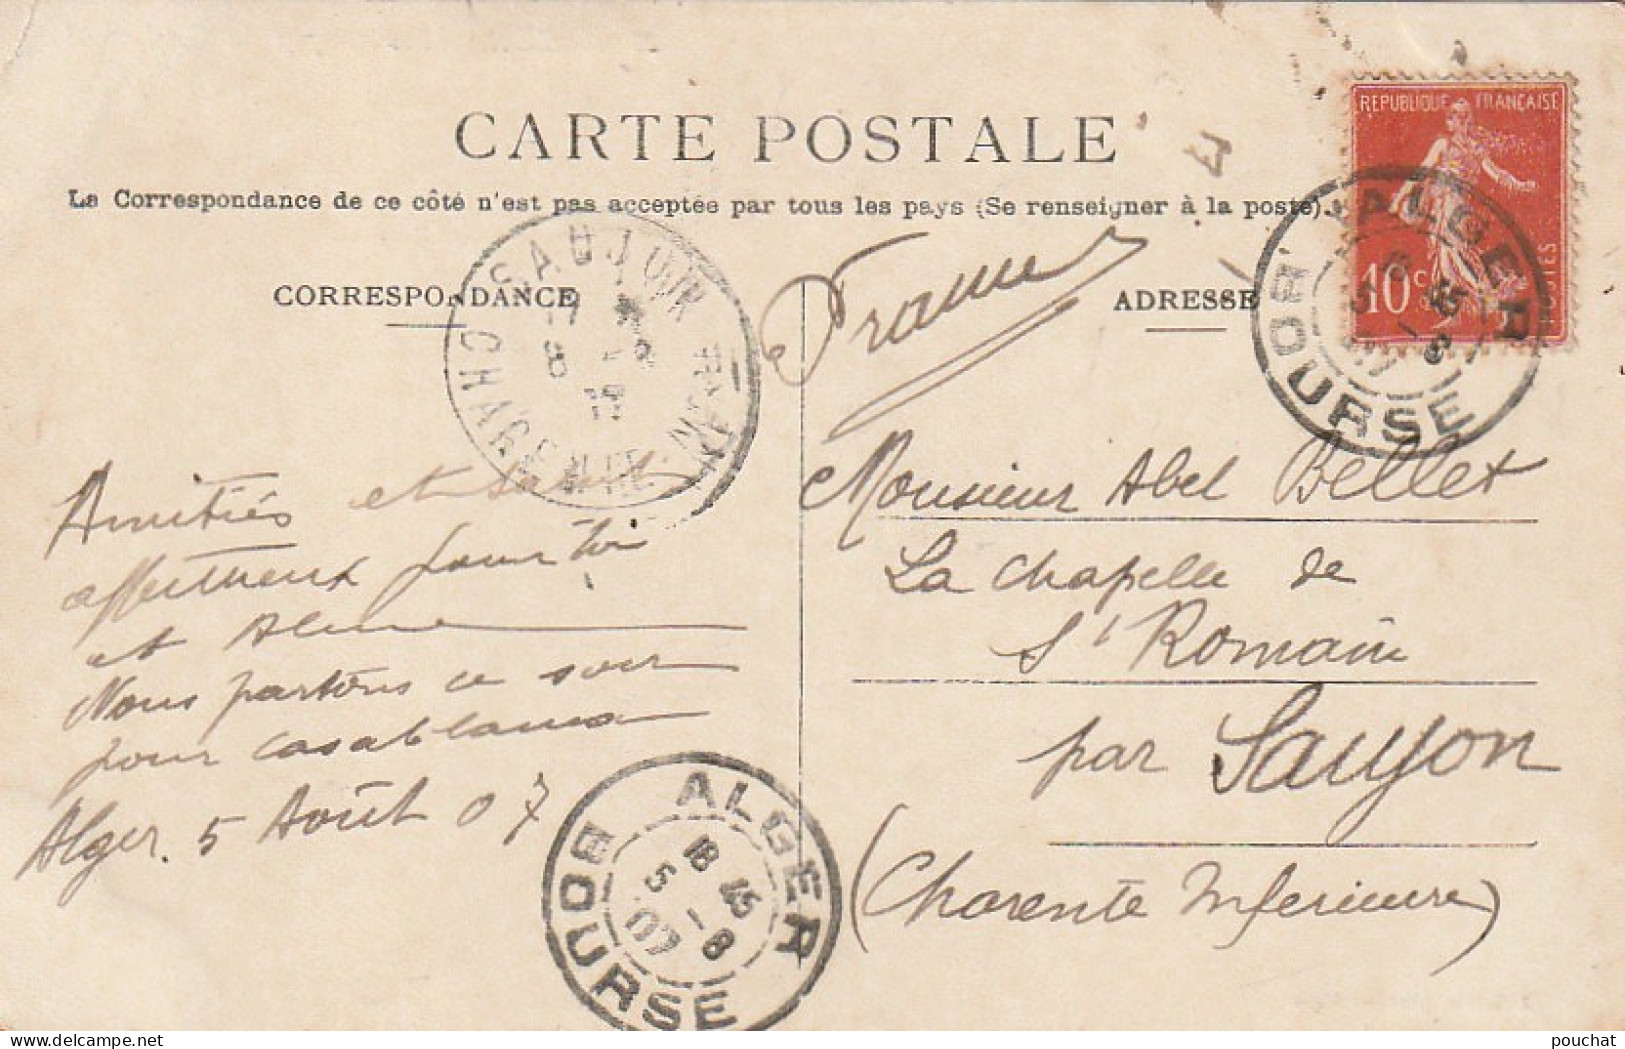 CARTE POSTALE
La Correspondance de ce côté n'est pas acceptée par tous les pays (Se renseigner à la poste).
CORRESPONDANCE
ADRESSE
REPUBLIQUE FRANÇAISE
POSTES
10 c
ALGER
BOURSE
SAUJON
CHARENTE INFRE
France
Monsieur Abel Bellet
La Chapelle de
St Romain
par Saujon
(Charente Inferieure)
Amitiés et salut
affectueux pour toi
et Aline
Nous partons ce soir
pour Casablanca
Alger. 5 Août 07
ALGER
18 45
5 - 8
07
BOURSE
pouchat